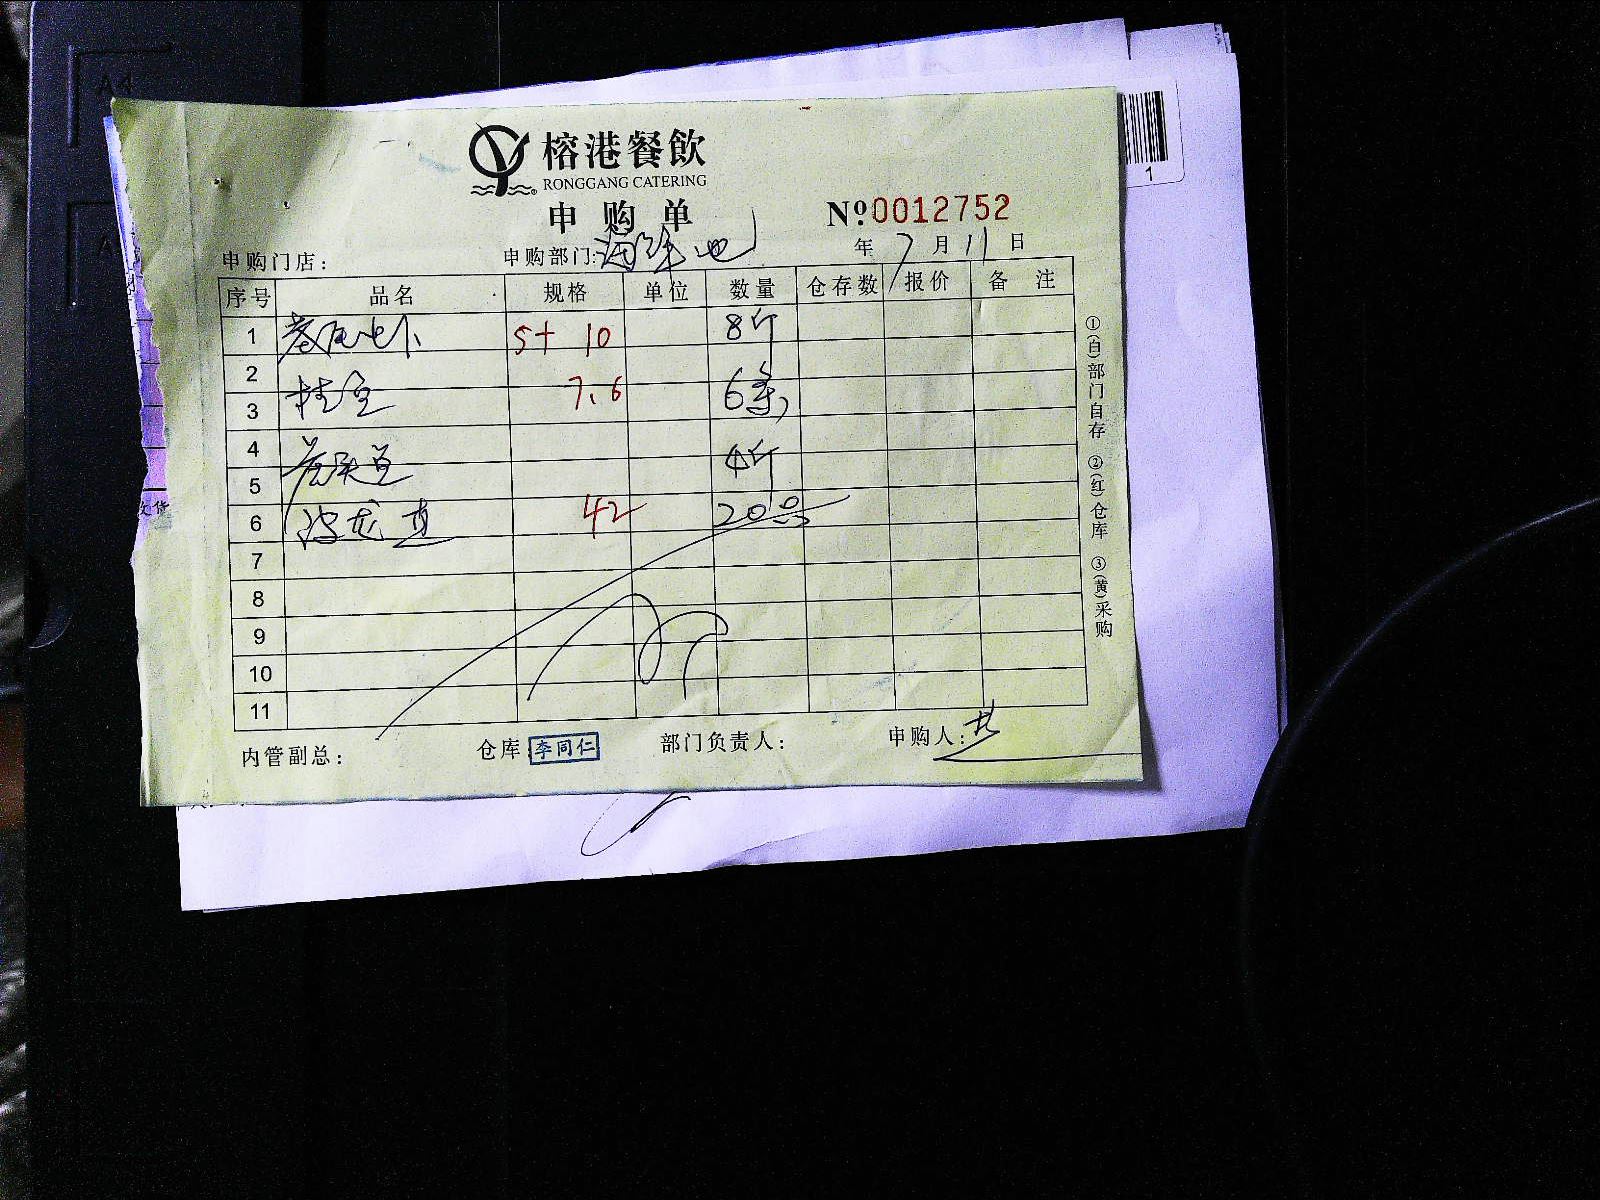 A4
榕港餐飲
RONGGANG CATERING
申购单
№0012752
1
申购门店: 申购部门:海鲜池 年 7 月 11 日
序号 品名 规格 单位 数量 仓存数 报价 备 注
1 5+ 10 8斤
2
3 桂鱼 7.6 6条
4
5 4斤
6 波龙 42 20
7
8
9
10
11
①(白)部门自存 ②(红)仓库 ③(黄)采购
内管副总: 仓库:李同仁 部门负责人: 申购人: